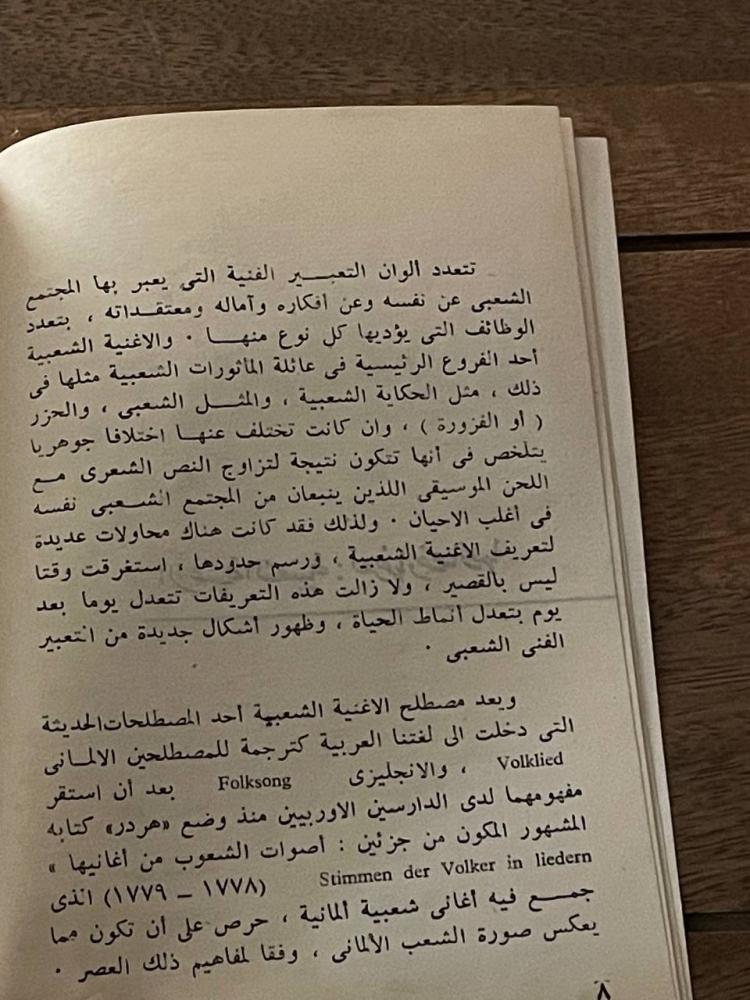 تتعدد ألوان التعبير الفنية التى يعبر بها المجتمع
الشعبى عن نفسه وعن أفكاره وآماله ومعتقداته ، بتعدد
الوظائف التى يؤديها كل نوع منها ٠ والاغنية الشعبية
أحد الفروع الرئيسية فى عائلة المأثورات الشعبية مثلها فى
ذلك ، مثل الحكاية الشعبية ، والمثل الشعبى ، والحزر
( أو الفزورة ) ، وان كانت تختلف عنها اختلافا جوهريا
يتلخص فى أنها تتكون نتيجة لتزاوج النص الشعرى مع
اللحن الموسيقى اللذين ينبعان من المجتمع الشعبى نفسه
فى أغلب الاحيان ٠ ولذلك فقد كانت هناك محاولات عديدة
لتعريف الاغنية الشعبية ، ورسم حدودها ، استغرقت وقتا
ليس بالقصير ، ولا زالت هذه التعريفات تتعدل يوما بعد
يوم بتعدل أنماط الحياة ، وظهور أشكال جديدة من التعبير
الفنى الشعبى ٠
ويعد مصطلح الاغنية الشعبية أحد المصطلحات الحديثة
التى دخلت الى لغتنا العربية كترجمة للمصطلحين الالمانى
Volklied ، والانجليزى Folksong بعد أن استقر
مفهومهما لدى الدارسين الاوربيين منذ وضع «هردر» كتابه
المشهور المكون من جزئين : أصوات الشعوب من أغانيها »
Stimmen der Volker in liedern (١٧٧٨ – ١٧٧٩) الذى
جمع فيه أغانى شعبية ألمانية ، حرص على أن تكون مما
يعكس صورة الشعب الألمانى ، وفقا لمفاهيم ذلك العصر ٠
٨